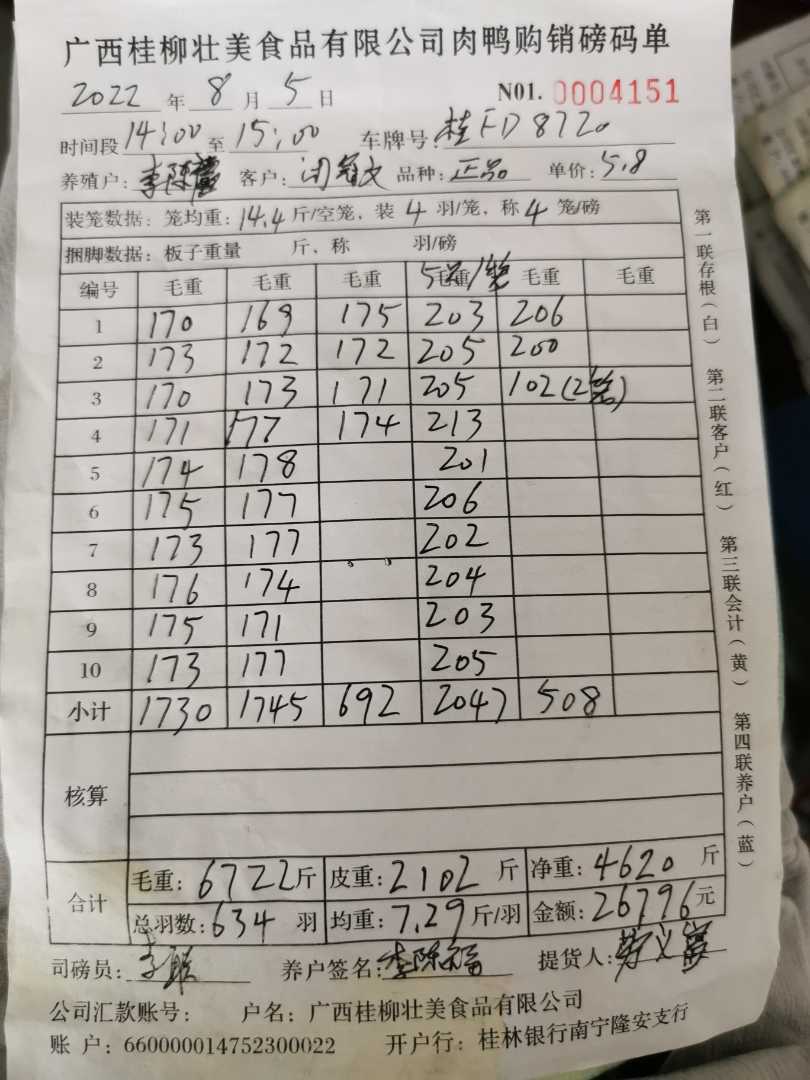 广西桂柳壮美食品有限公司肉鸭购销磅码单
2022 年 8 月 5 日 N01. 0004151
时间段 14:00 至 15:00 车牌号: 桂FD8720
养殖户: 李陈富 客户: 闭 文 品种: 正品 单价: 5.8
装笼数据: 笼均重: 14.4 斤/空笼, 装 4 羽/笼, 称 4 笼/磅
捆脚数据: 板子重量 斤、称 羽/磅
5只/笼
编号 毛重 毛重 毛重 毛重 毛重 毛重
1 170 169 175 203 206
2 173 172 172 205 200
3 170 173 171 205 102(2笼)
4 171 177 174 213
5 174 178 201
6 175 177 206
7 173 177 202
8 176 174 204
9 175 171 203
10 173 177 205
小计 1730 1745 692 2047 508
核算
合计 毛重: 6722 斤 皮重: 2102 斤 净重: 4620 斤
总羽数: 634 羽 均重: 7.29 斤/羽 金额: 26796 元
司磅员: 李 养户签名: 李陈福 提货人:
公司汇款账号: 户名: 广西桂柳壮美食品有限公司
账 户: 660000014752300022 开户行: 桂林银行南宁隆安支行
第一联存根(白) 第二联客户(红) 第三联会计(黄) 第四联养户(蓝)